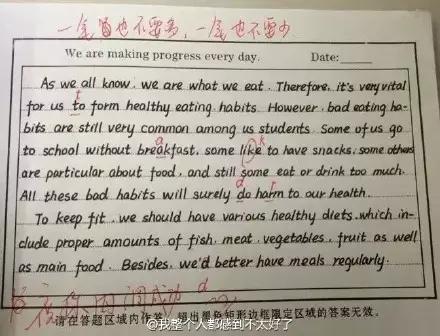 一笔画也不要多，一笔也不要少
We are making progress every day. Date:
As we all know, we are what we eat. Therefore, it's very vital
t
for us to form healthy eating habits. However, bad eating ha-
bits are still very common among us students. Some of us go
a k
to school without breakfast, some like to have snacks, some others
are particular about food, and still some eat or drink too much.
d r
All these bad habits will surely do harm to our health.
To keep fit, we should have various healthy diets, which in-
clude proper amounts of fish, meat, vegetables, fruit as well
as main food. Besides, we'd better have meals regularly.
成功 d
请在答题区域内作答，超出黑色矩形边框限定区域的答案无效。
@我整个人都感到不太好了